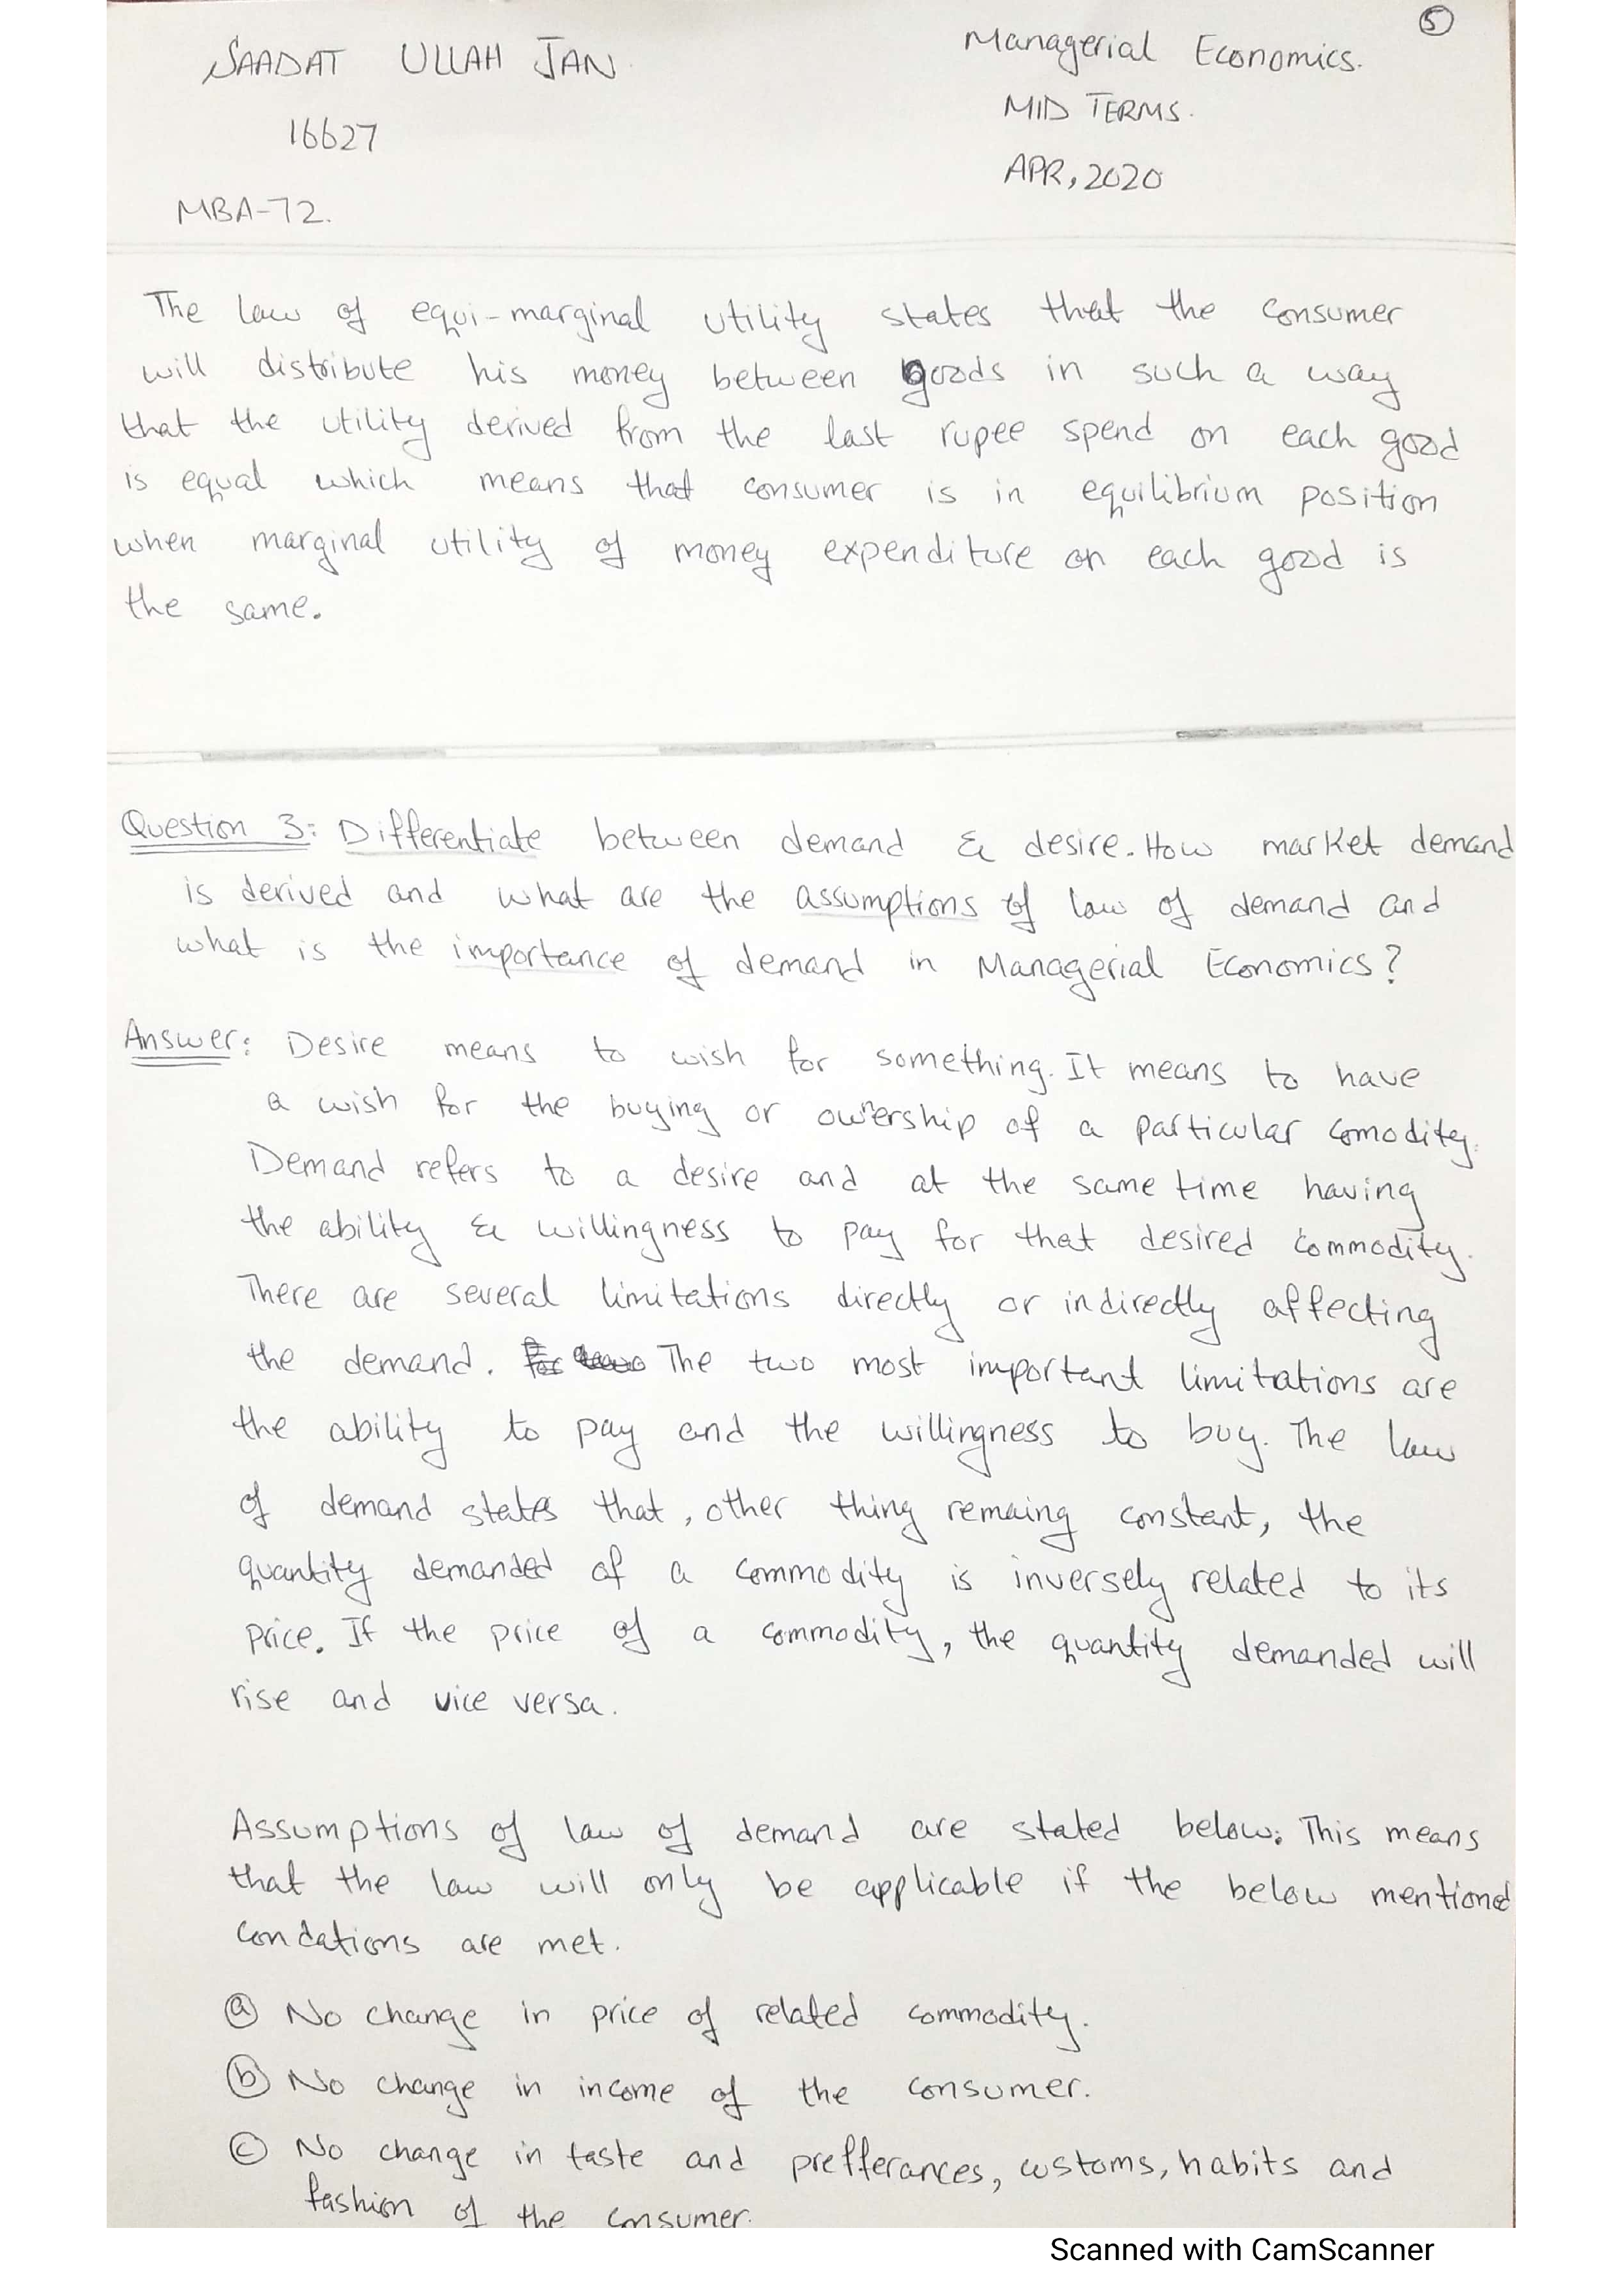 5
SAADAT ULLAH JAN
16627
MBA-72.
Managerial Economics.
MID TERMS.
APR, 2020
The law of equi-marginal utility states that the consumer
will distribute his money between goods in such a way
that the utility derived from the last rupee spend on each good
is equal which means that consumer is in equilibrium position
when marginal utility of money expenditure on each good is
the same.
Question 3: Differentiate between demand & desire. How market demand
is derived and what are the assumptions of law of demand and
what is the importance of demand in Managerial Economics?
Answer: Desire means to wish for something. It means to have
a wish for the buying or owership of a particular comodity.
Demand refers to a desire and at the same time having
the ability & willingness to pay for that desired commodity.
There are several limitations directly or indirectly affecting
the demand. The two most important limitations are
the ability to pay and the willingness to buy. The law
of demand states that, other thing remaing constant, the
quantity demanded of a commodity is inversely related to its
price. If the price of a commodity, the quantity demanded will
rise and vice versa.
Assumptions of law of demand are stated below: This means
that the law will only be applicable if the below mentiond
condations are met.
a No change in price of related commodity.
b No change in income of the consumer.
c No change in taste and prefferances, customs, habits and
fashion of the consumer.
Scanned with CamScanner